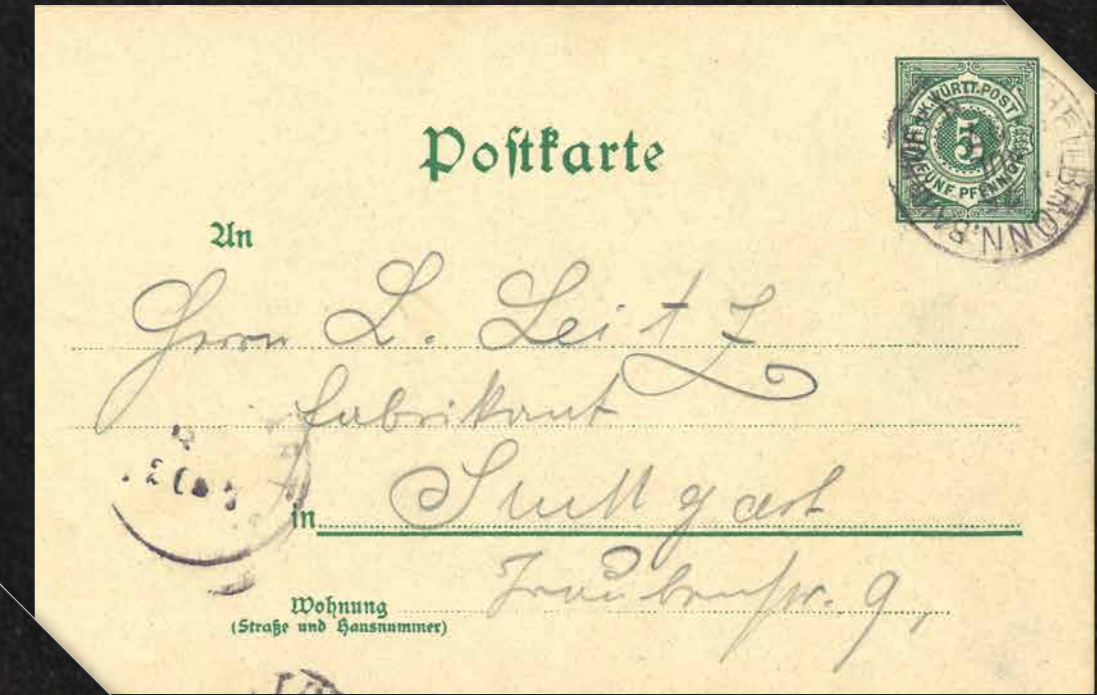 Postkarte
K. WÜRTT. POST
5
FÜNF PFENNIG
HEILBRONN
An
Herrn L. Leitz
Fabrikant
in Stuttgart
Wohnung Traubenstr. 9,
(Straße und Hausnummer)